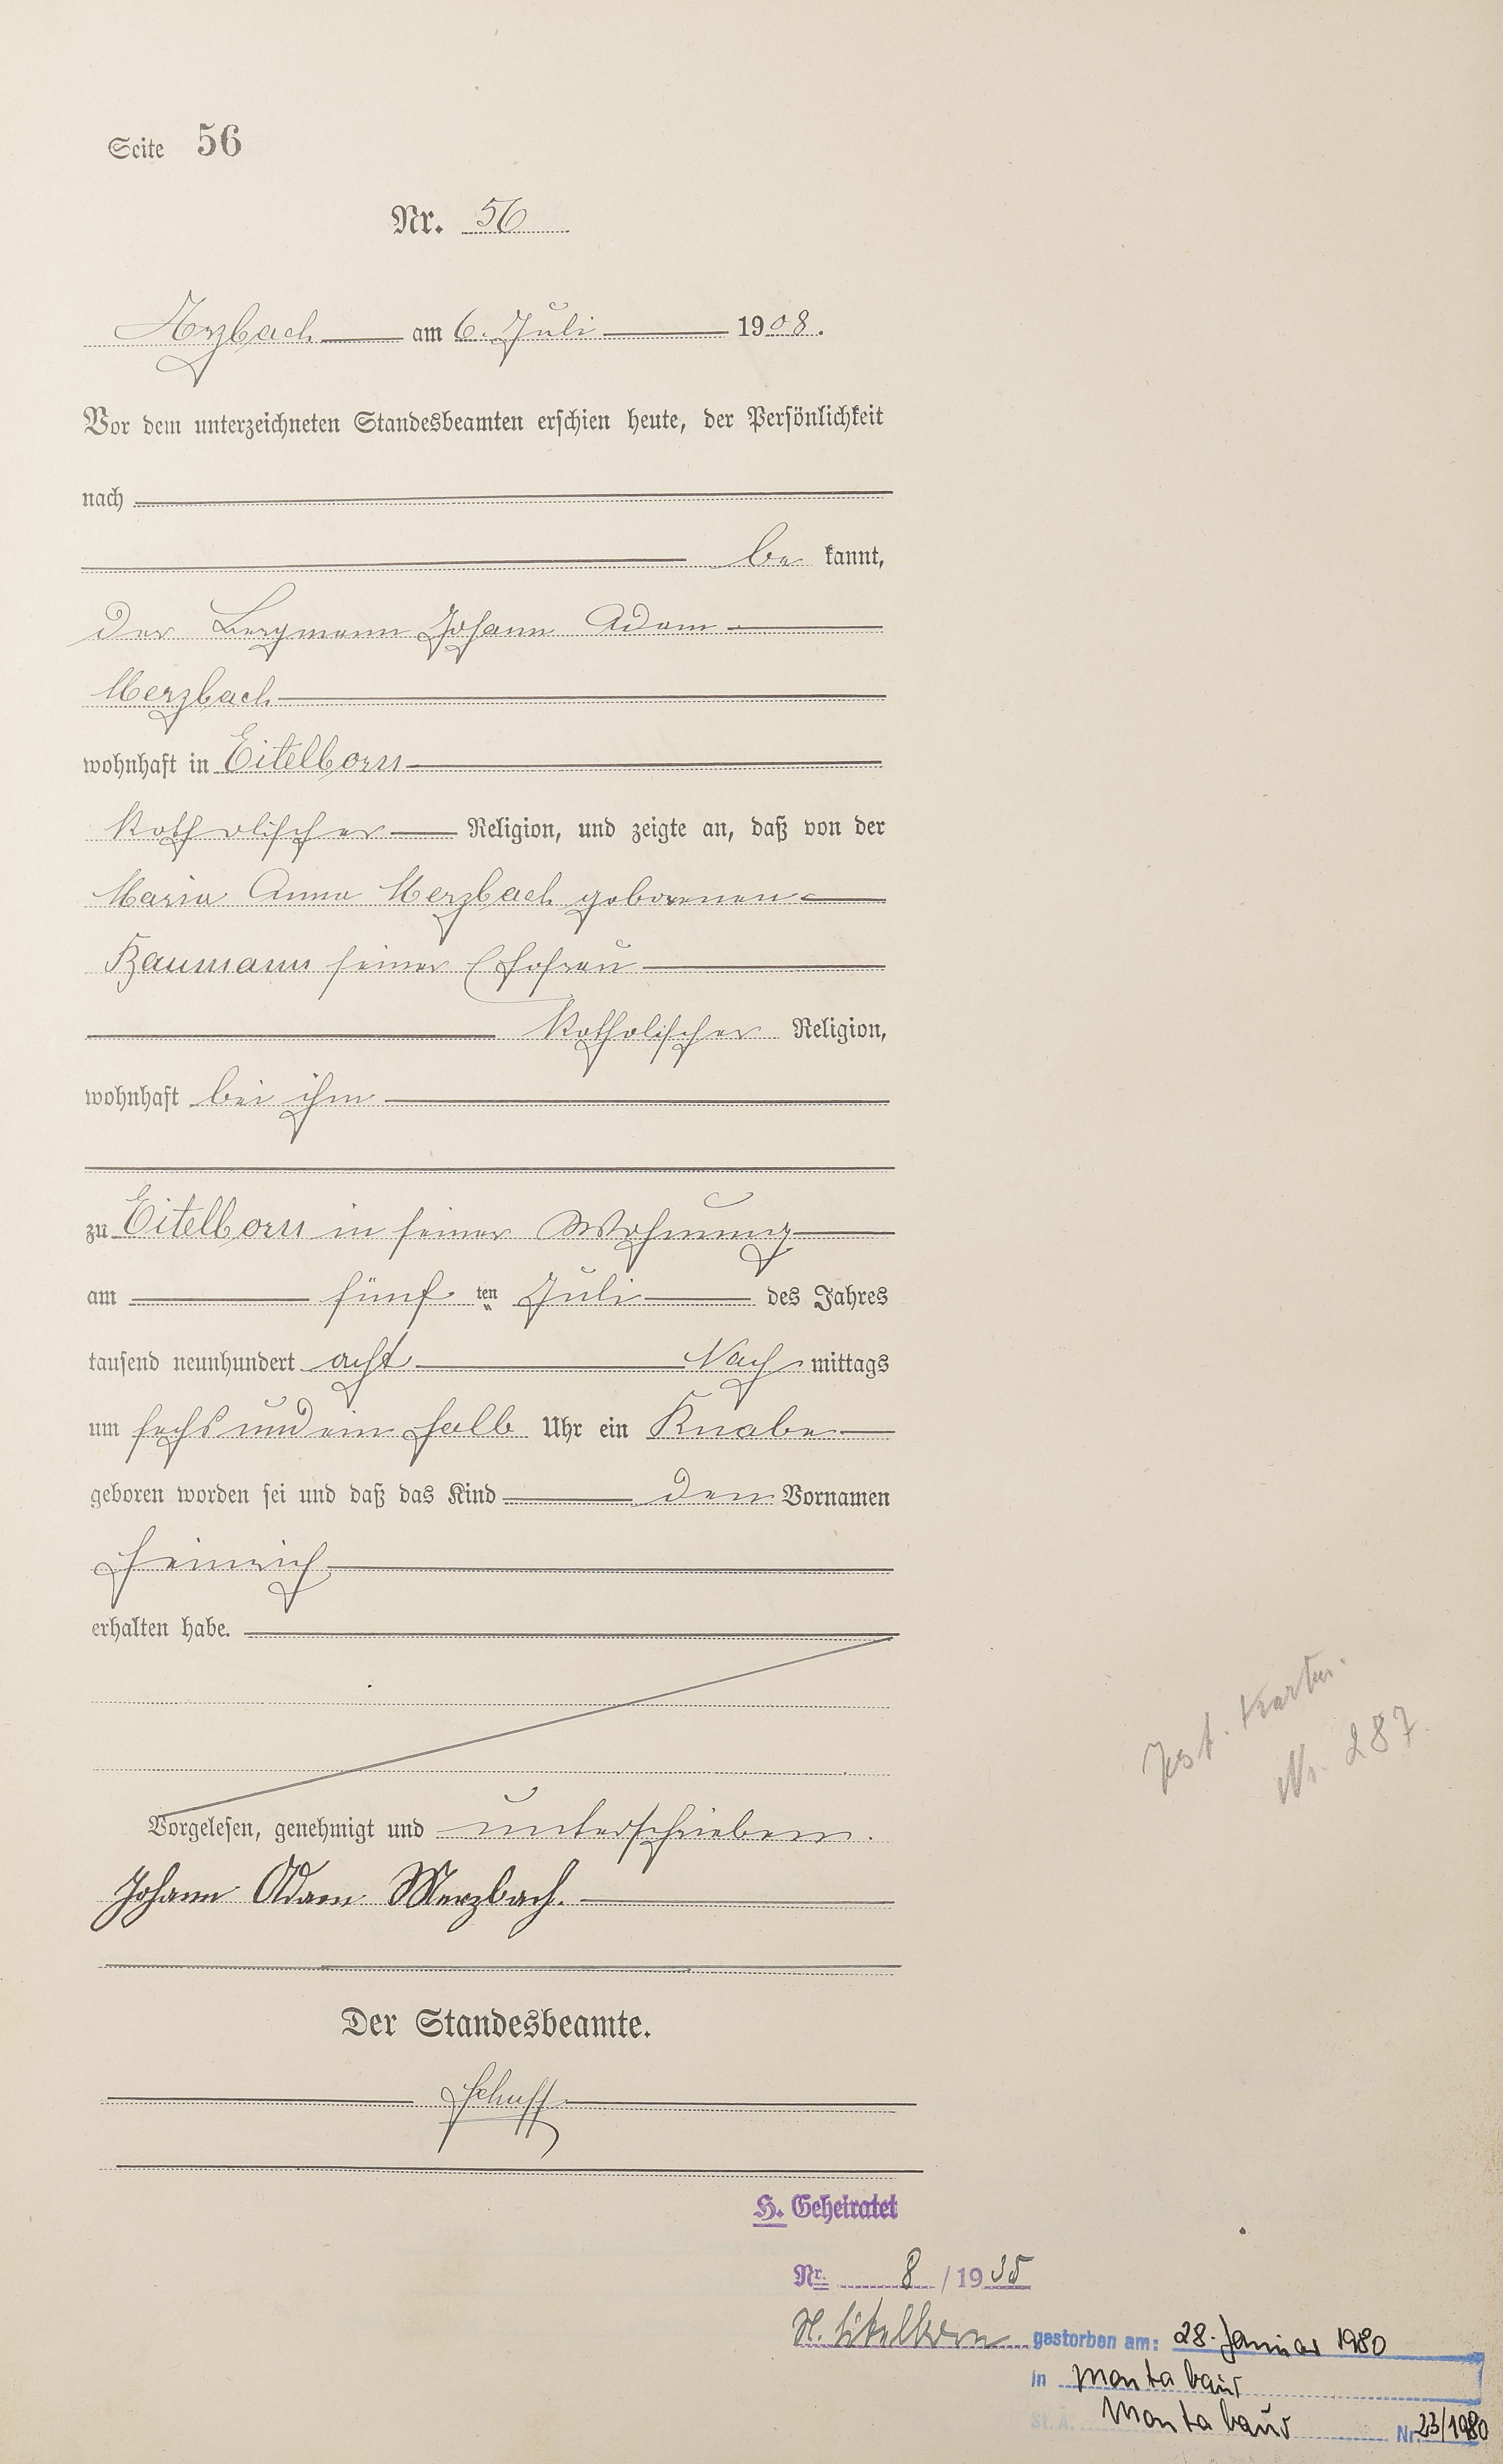 Seite 56
Nr. 56
Arzbach am 6. Juli 1908.
Vor dem unterzeichneten Standesbeamten erschien heute, der Persönlichkeit
nach
be kannt,
der Bergmann Johann Adam
Merzbach
wohnhaft in Eitelborn
katholischer Religion, und zeigte an, daß von der
Maria Anna Merzbach geborenen
Baumann seiner Ehefrau
katholischer Religion,
wohnhaft bei ihm
zu Eitelborn in seiner Wohnung
am fünf ten Juli des Jahres
tausend neunhundert acht Nach mittags
um sechs und ein halb Uhr ein Knabe
geboren worden sei und daß das Kind den Vornamen
Heinrich
erhalten habe.
Vorgelesen, genehmigt und unterschrieben.
Johann Adam Merzbach.
Der Standesbeamte.
Schuff
H. Geheiratet
Nr. 8 / 1935
St. Eitelborn
gestorben am: 28. Januar 1980
in Montabaur
St. A. Montabaur Nr. 23/1980
Nr. 287.